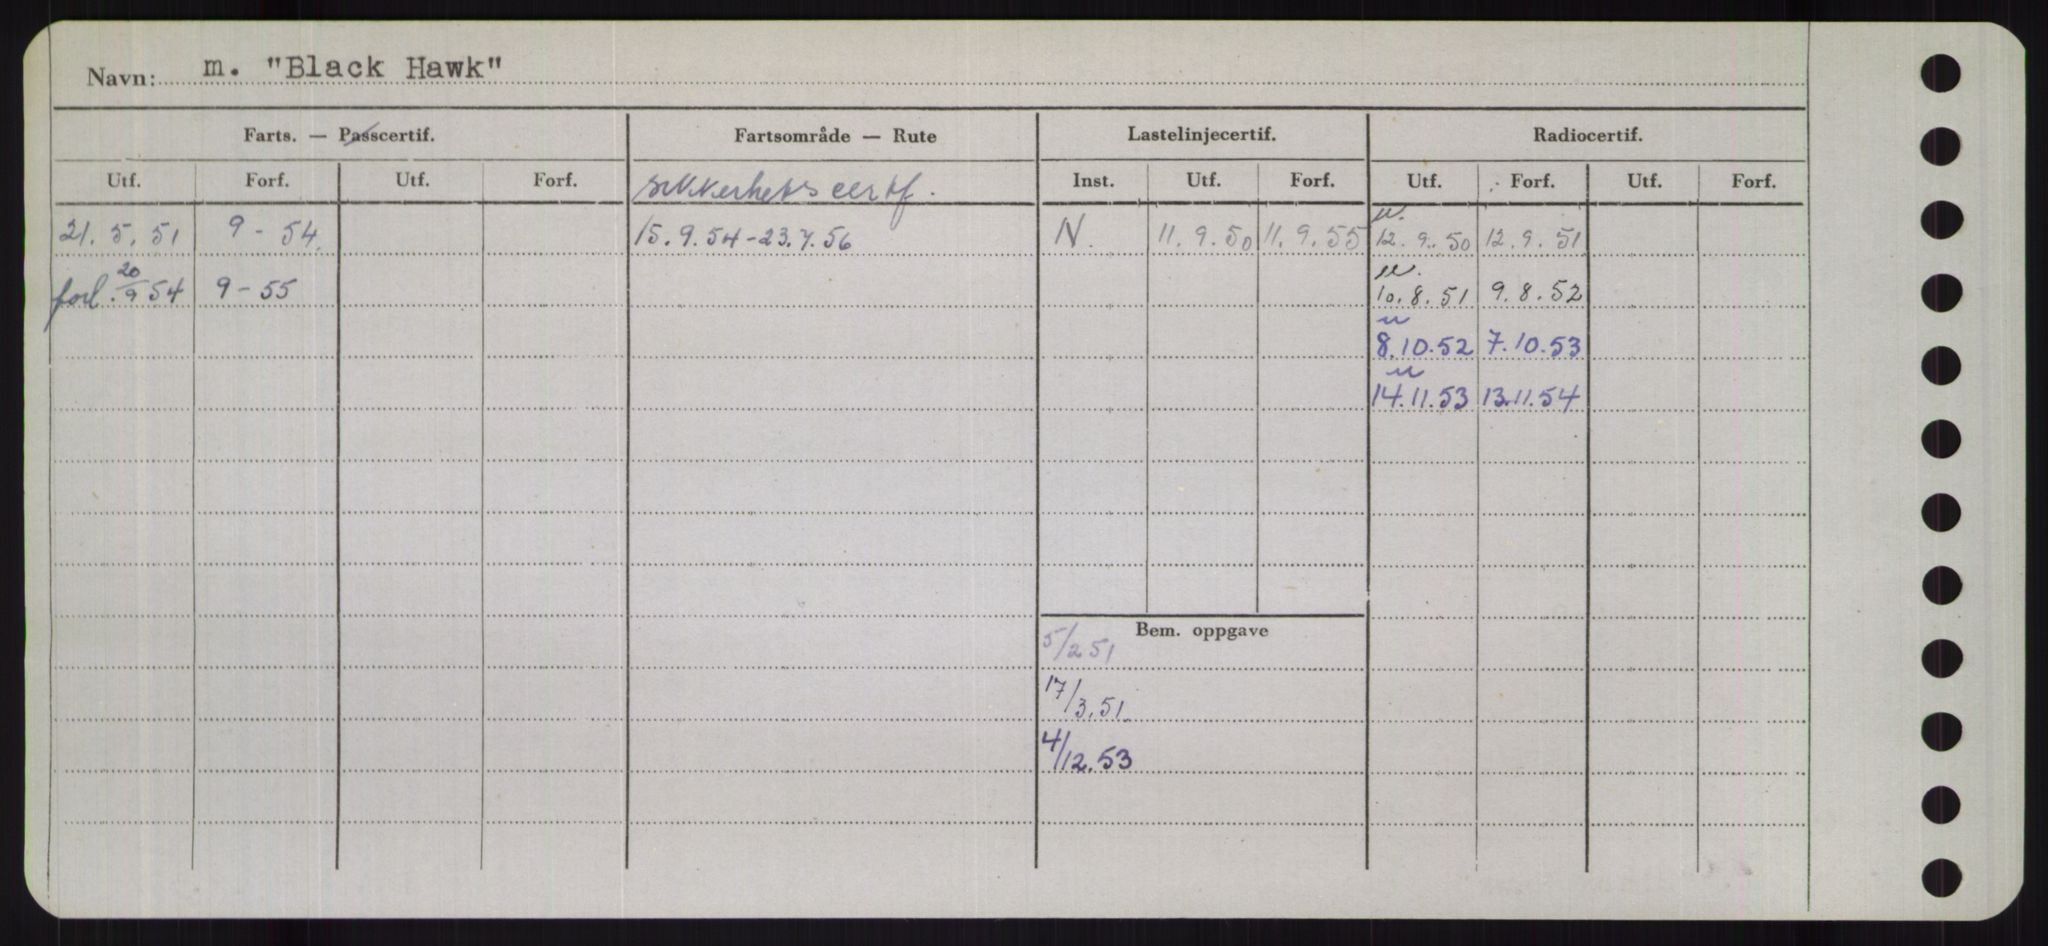 Navn: m. "Black Hawk"
Farts. — Passcertif. Fartsområde — Rute Lastelinjecertif. Radiocertif.
Utf. Forf. Utf. Forf. sikkerhetscertf. Inst. Utf. Forf. Utf. Forf. Utf. Forf.
21. 5. 51 9 - 54. 15. 9. 54 - 23. 7. 56 N. 11. 9. 50 11. 9. 55 12. 9. 50 12. 9. 51
forl. 20/9 54 9 - 55 10. 8. 51 9. 8. 52
8. 10. 52 7. 10. 53
14. 11. 53 13. 11. 54
Bem. oppgave
5/2 51
17/3. 51.
4/12. 53